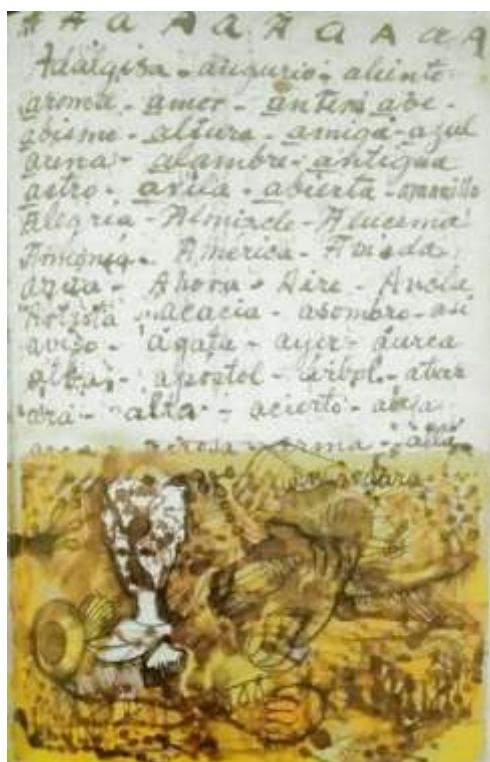 A a A a A a A a A
Adalgisa - augurio - aliento
aroma - amor - antera ave -
abismo - altura - amiga - azul
arena - alambre - antigua
astro - avila - abierta - amarillo
Alegria - Almizcle - Alucema
Armonía - America - Amada
agua - Ahora - Aire - Ancla
Artista - acacia - asombro - así
aviso - ágata - ayer - áurea
alba - apostol - árbol - atar
ara - alta - acierto - abeja
arma - allá